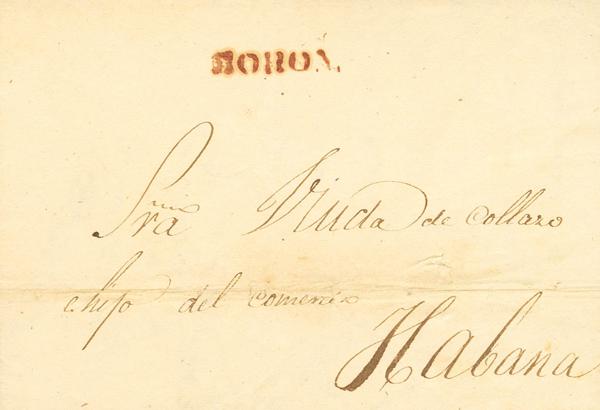 MORON
Sra Viuda de Collazo
e hijo del comercio
Habana